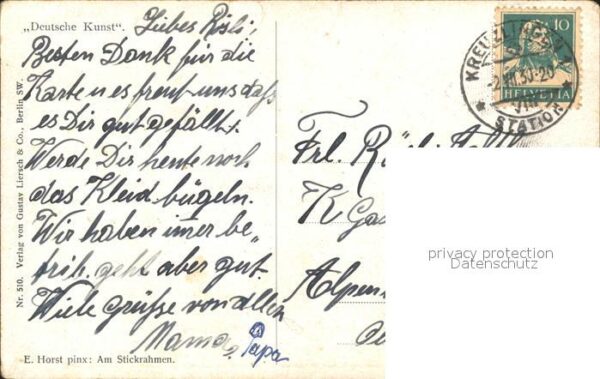 „Deutsche Kunst“.
Liebes Rösli,
Besten Dank für die
Karte u es freut uns daß
es Dir gut gefällt.
Werde Dir heute noch
das Kleid bügeln.
Wir haben imer be„
trib. geht aber gut.
Viele Grüße von allen
Mama, Papa
E. Horst pinx: Am Stickrahmen.
Nr. 510. Verlag von Gustav Liersch & Co., Berlin SW.
KREUZLINGEN
STATION
10
HELVETIA
Frl.
K
Alpen
privacy protection
Datenschutz